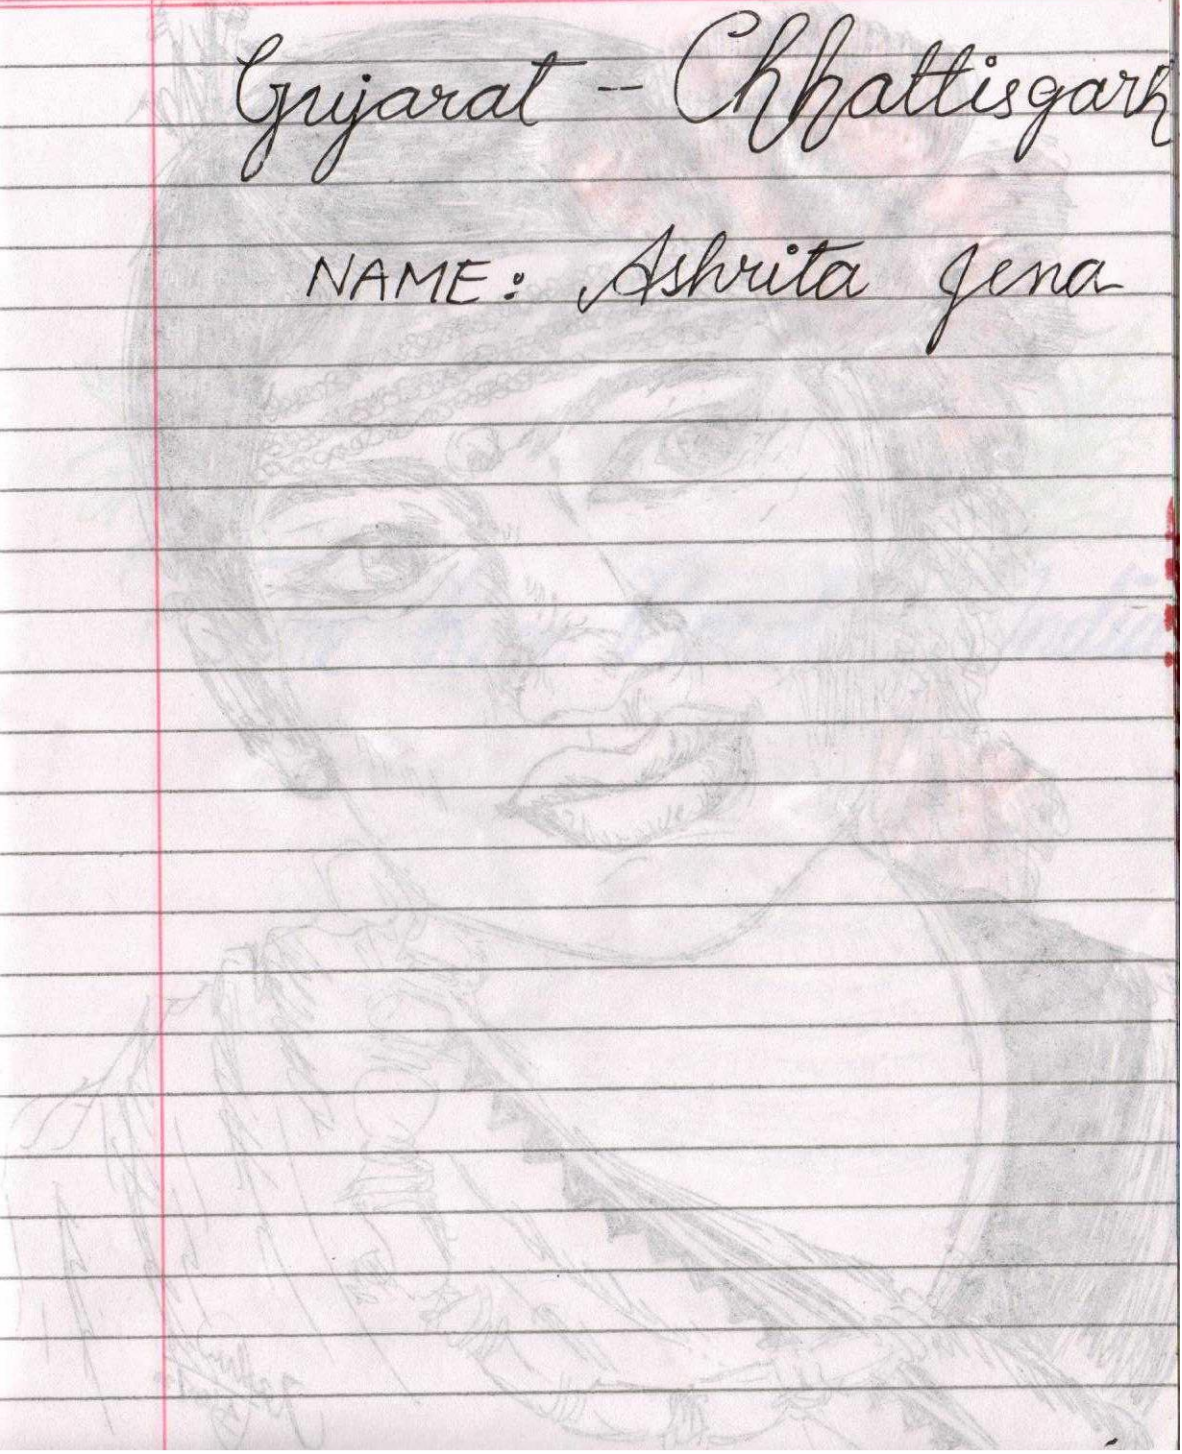 Gujarat -- Chhattisgarh
NAME: Ashrita Jena